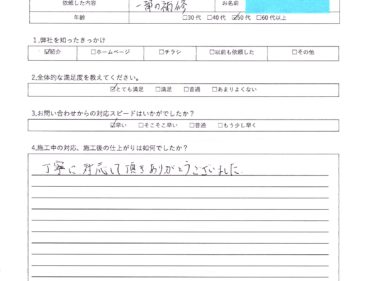 依頼した内容 一部の補修 お名前
年齢 □30代 □40代 ☑50代 □60代以上
1.弊社を知ったきっかけ
☑紹介 □ホームページ □チラシ □以前も依頼した □その他
2.全体的な満足度を教えてください。
☑とても満足 □満足 □普通 □あまりよくない
3.お問い合わせからの対応スピードはいかがでしたか？
☑早い □そこそこ早い □普通 □もう少し早く
4.施工中の対応、施工後の仕上がりは如何でしたか？
丁寧に対応して頂きありがとうございました